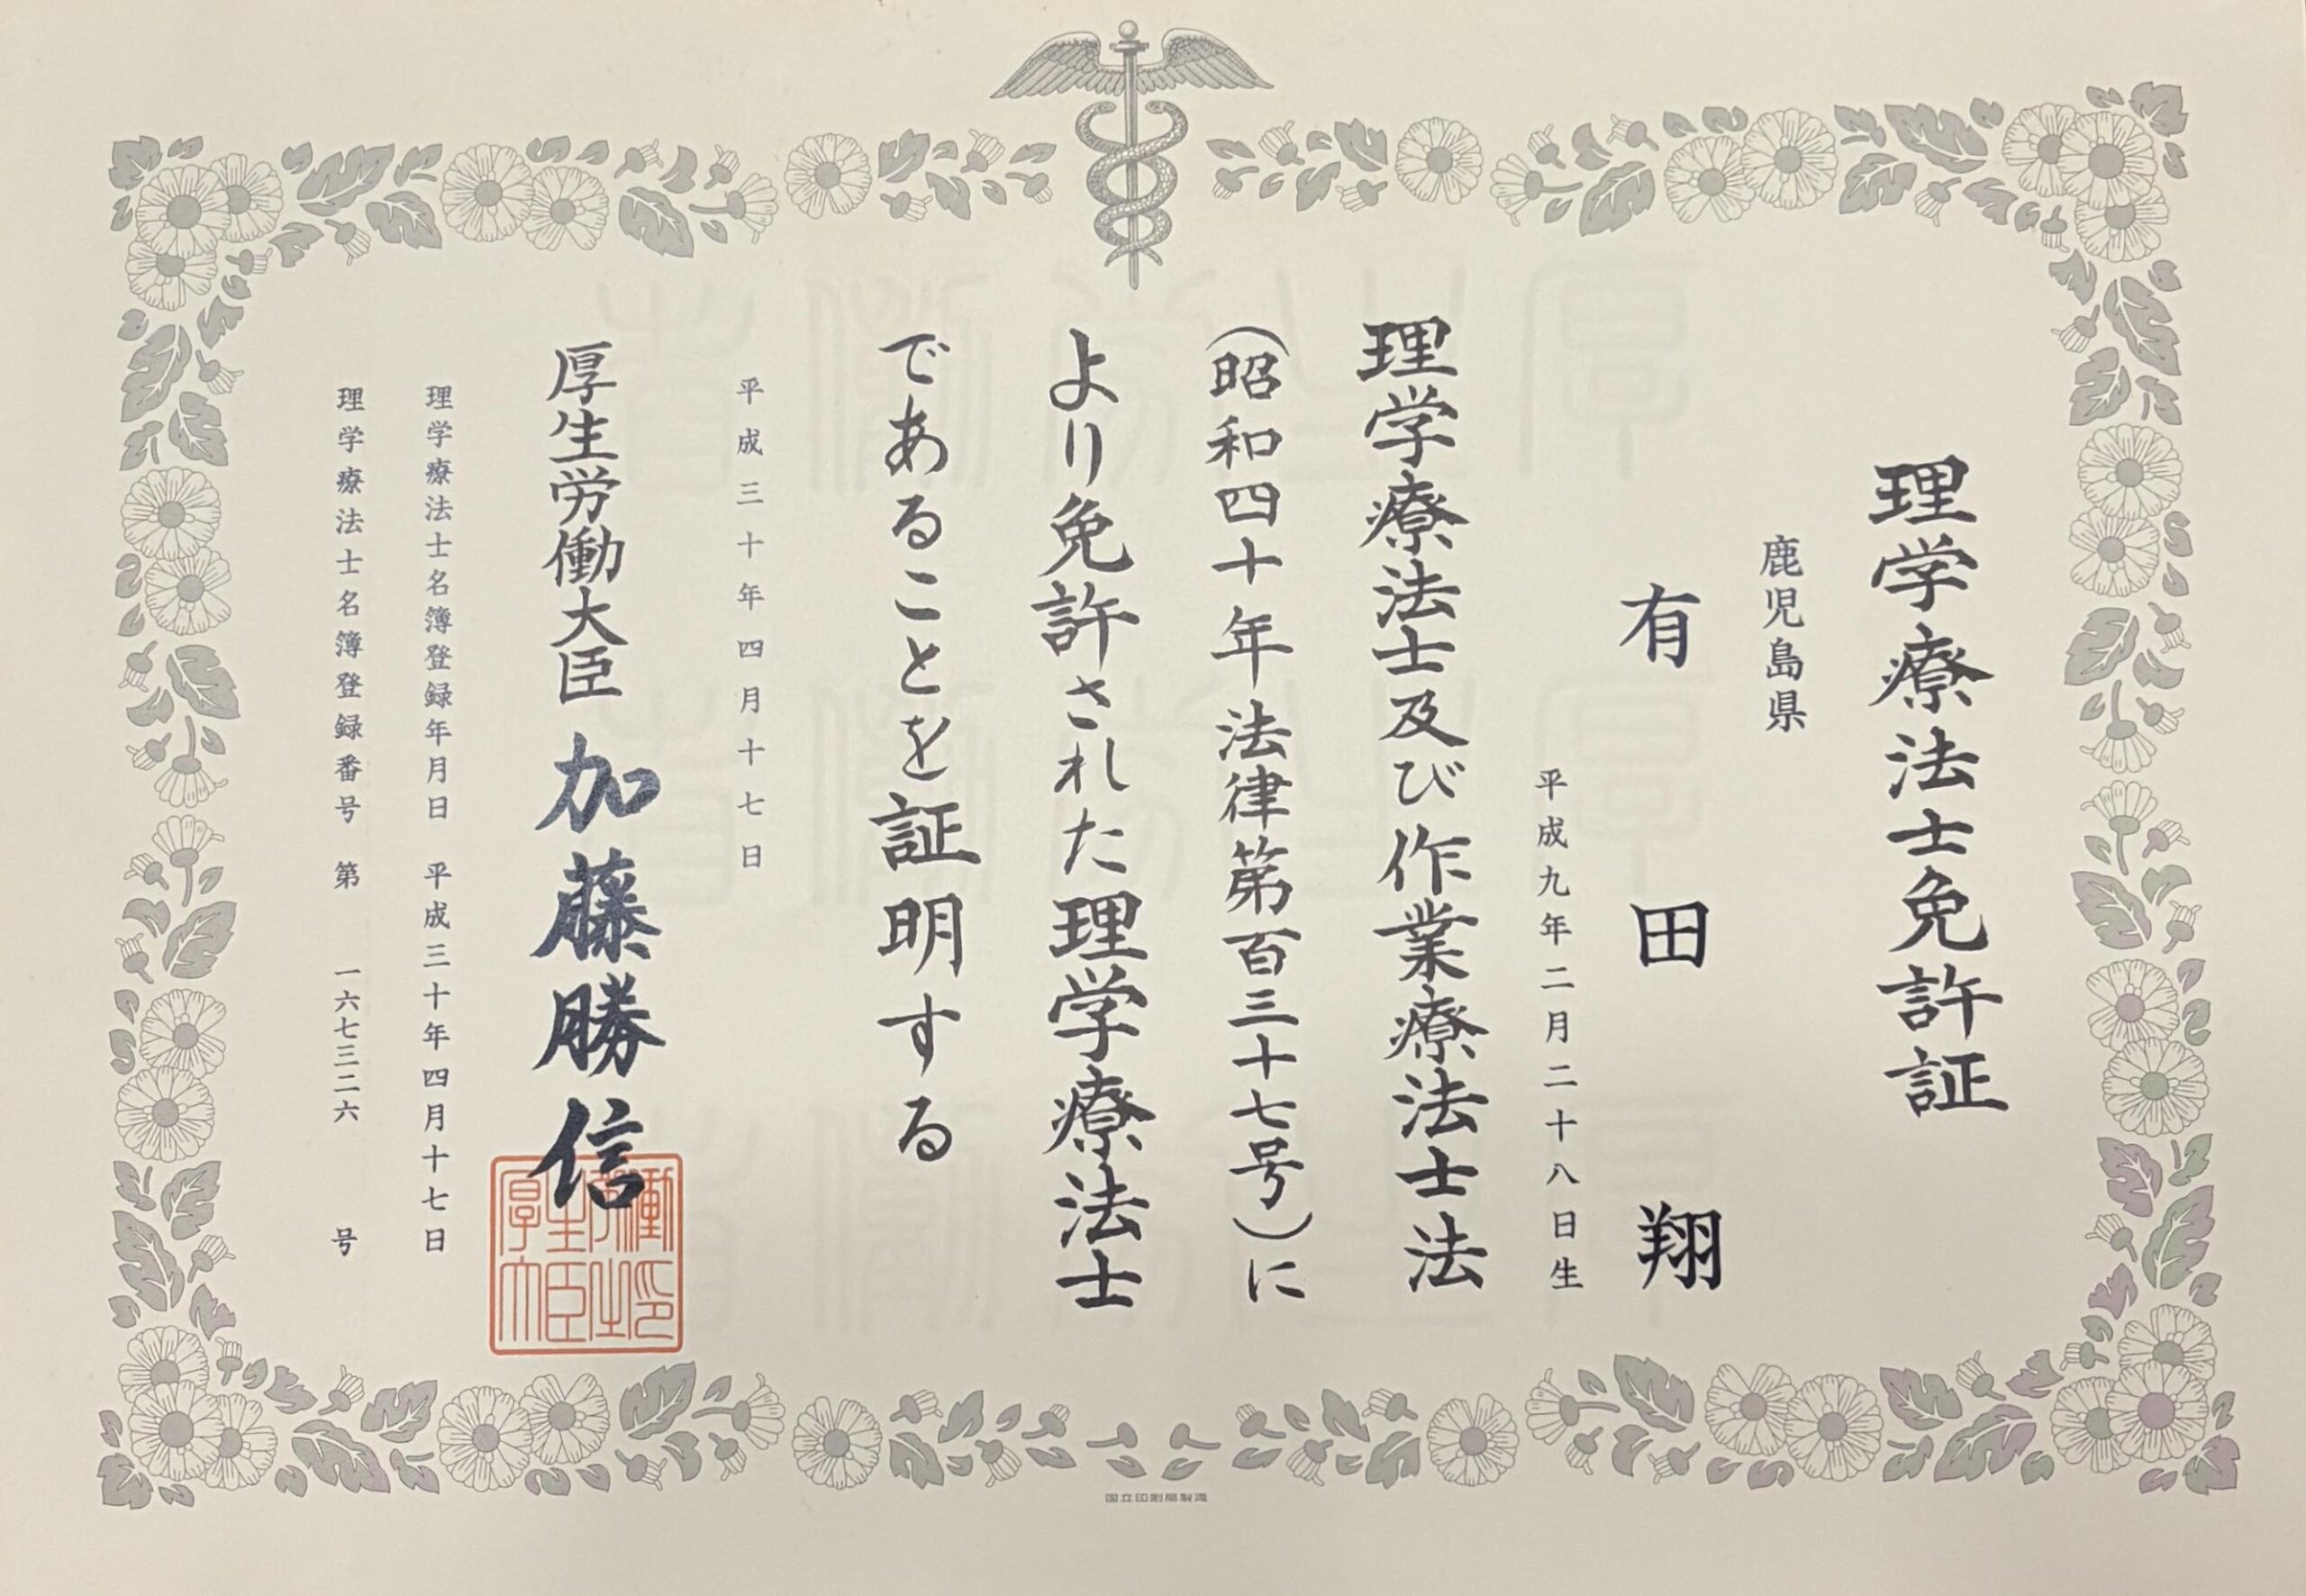 理学療法士免許証
鹿児島県
有田翔
平成九年二月二十八日生
理学療法士及び作業療法士法
(昭和四十年法律第百三十七号)に
より免許された理学療法士
であることを証明する
平成三十年四月十七日
厚生労働大臣 加藤勝信
理学療法士名簿登録年月日 平成三十年四月十七日
理学療法士名簿登録番号 第 一六七三二六 号
国立印刷局製造